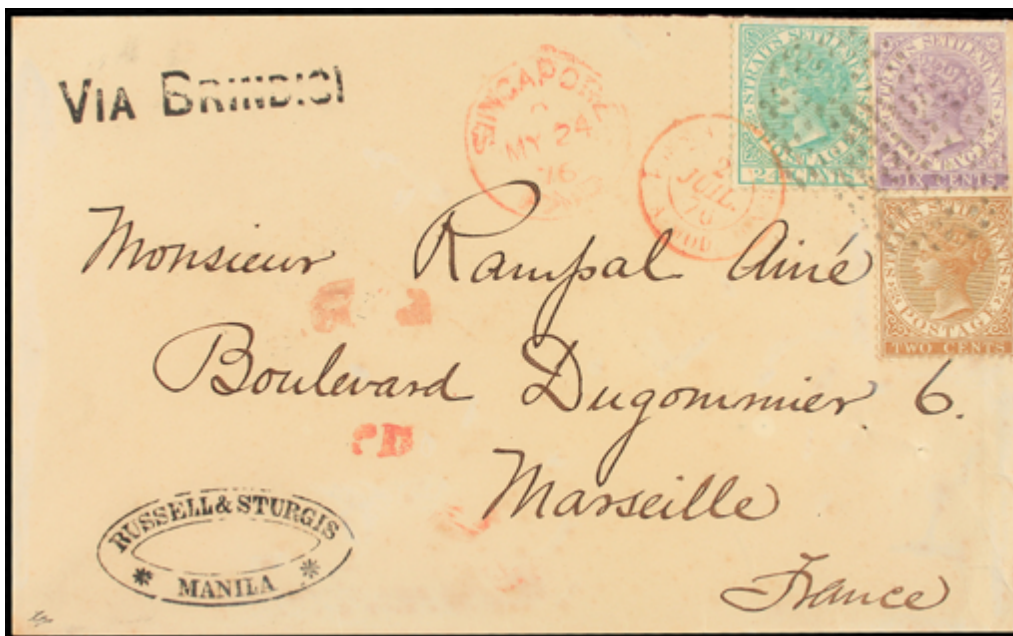 VIA BRINDISI
SINGAPORE
MY 24
76
PAID
2
JUIL
76
STRAITS SETTLEMENTS
POSTAGE
24 CENTS
STRAITS SETTLEMENTS
POSTAGE
SIX CENTS
STRAITS SETTLEMENTS
POSTAGE
TWO CENTS
Monsieur Rampal Ainé
Boulevard Dugommier 6.
Marseille
France
PD
RUSSELL & STURGIS
* MANILA *